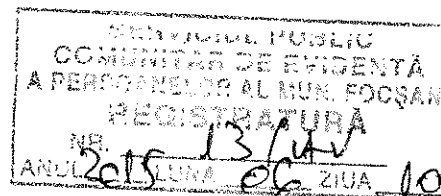 SERVICIUL PUBLIC
COMUNITAR DE EVIDENȚĂ
A PERSOANELOR AL MUN. FOCȘANI
REGISTRATURĂ
NR.
ANUL 2015 LUNA 06 ZIUA 10